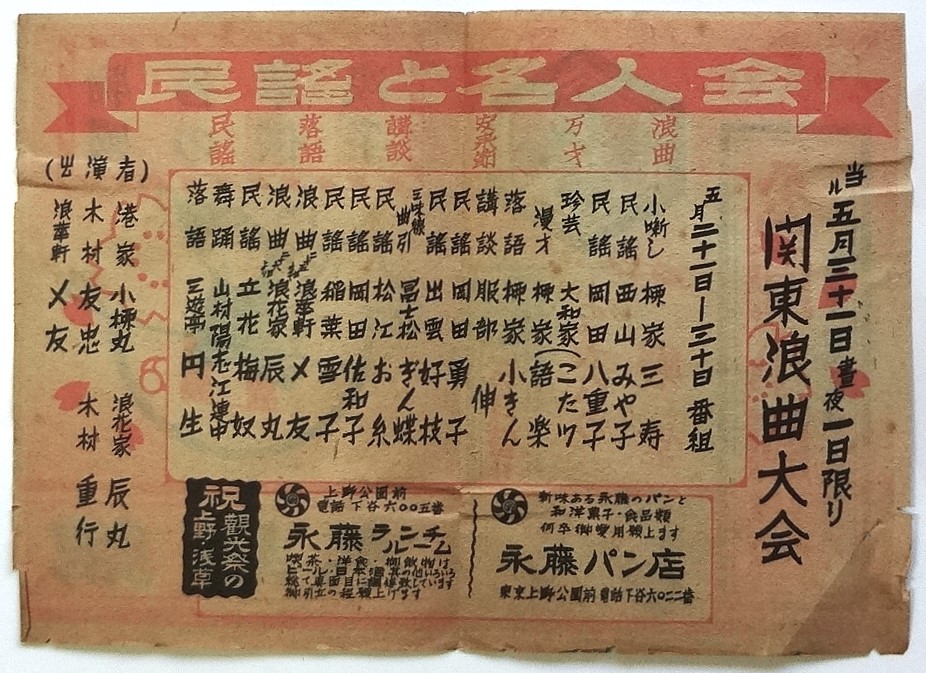 民謡と名人会
浪曲
万才
安来節
講談
落語
民謡
当ル五月三十一日晝夜一日限り
関東浪曲大会
五月二十一日—三十日番組
小噺し 柳家三寿
民謡 西山みや子
民謡 岡田八重子
珍芸 大和家(こたつ
漫才 柳家語楽
落語 柳家小きん
講談 服部伸
民謡 岡田勇子
民謡 出雲好枝
三味線曲引 冨士松ぎん蝶
民謡 松江お糸
民謡 佐和子
民謡 稲葉雪子
浪曲 浪華軒〆友
浪曲 浪花家辰丸
民謡 立花梅奴
舞踊 山村陽志江連中
落語 三遊亭円生
(出演者)
港家小柳丸
浪花家辰丸
木村友忠
木村重行
浪華軒〆友
新味ある永藤のパンと
和洋菓子・食品類
何卒御愛用願上ます
永藤パン店
東京上野公園前電話下谷六〇二二番
上野公園前
電話下谷六〇〇五番
永藤ランチルーム
喫茶・洋食・御飲物は
ビール・日本酒其の他いろいろ
総て真面目に調進致しています
御引立の程願上げます
祝観光祭の
上野・浅草